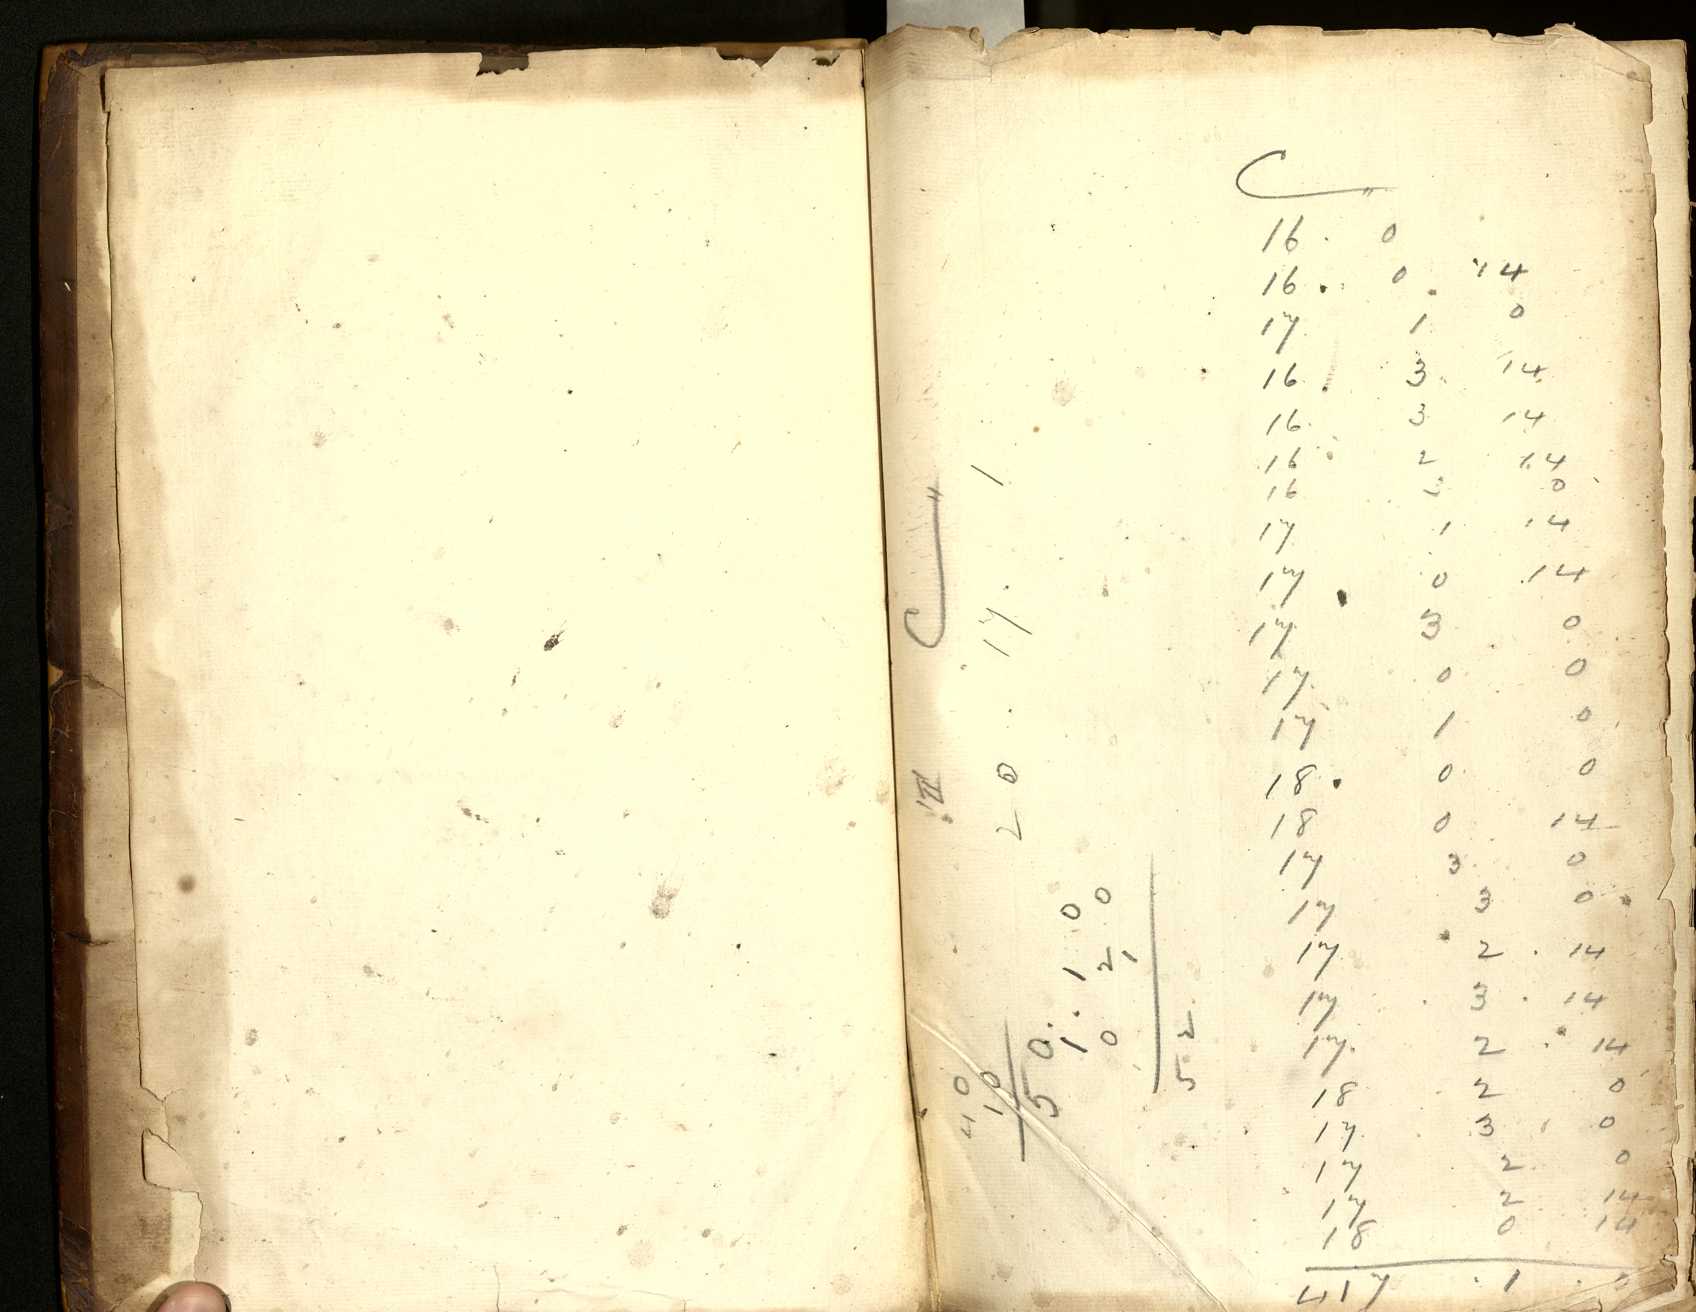 C
16 . 0
16 . 0 14
17 1 0
16 . 3 14
16 3 14
16 2 14
16 2 0
17 1 14
17 0 14
17 3 0
17 0 0
17 1 0
18 . 0 0
18 0 14
17 3 0
17 3 0
17 2 . 14
17 . 3 . 14
17 . 2 . 14
18 2 0
17 3 0
17 2 0
17 2 14
18 0 14
417 . 1 . 0
C
20 . 17 . 1
40
10
50 .
1 . 10
0 20
1
52